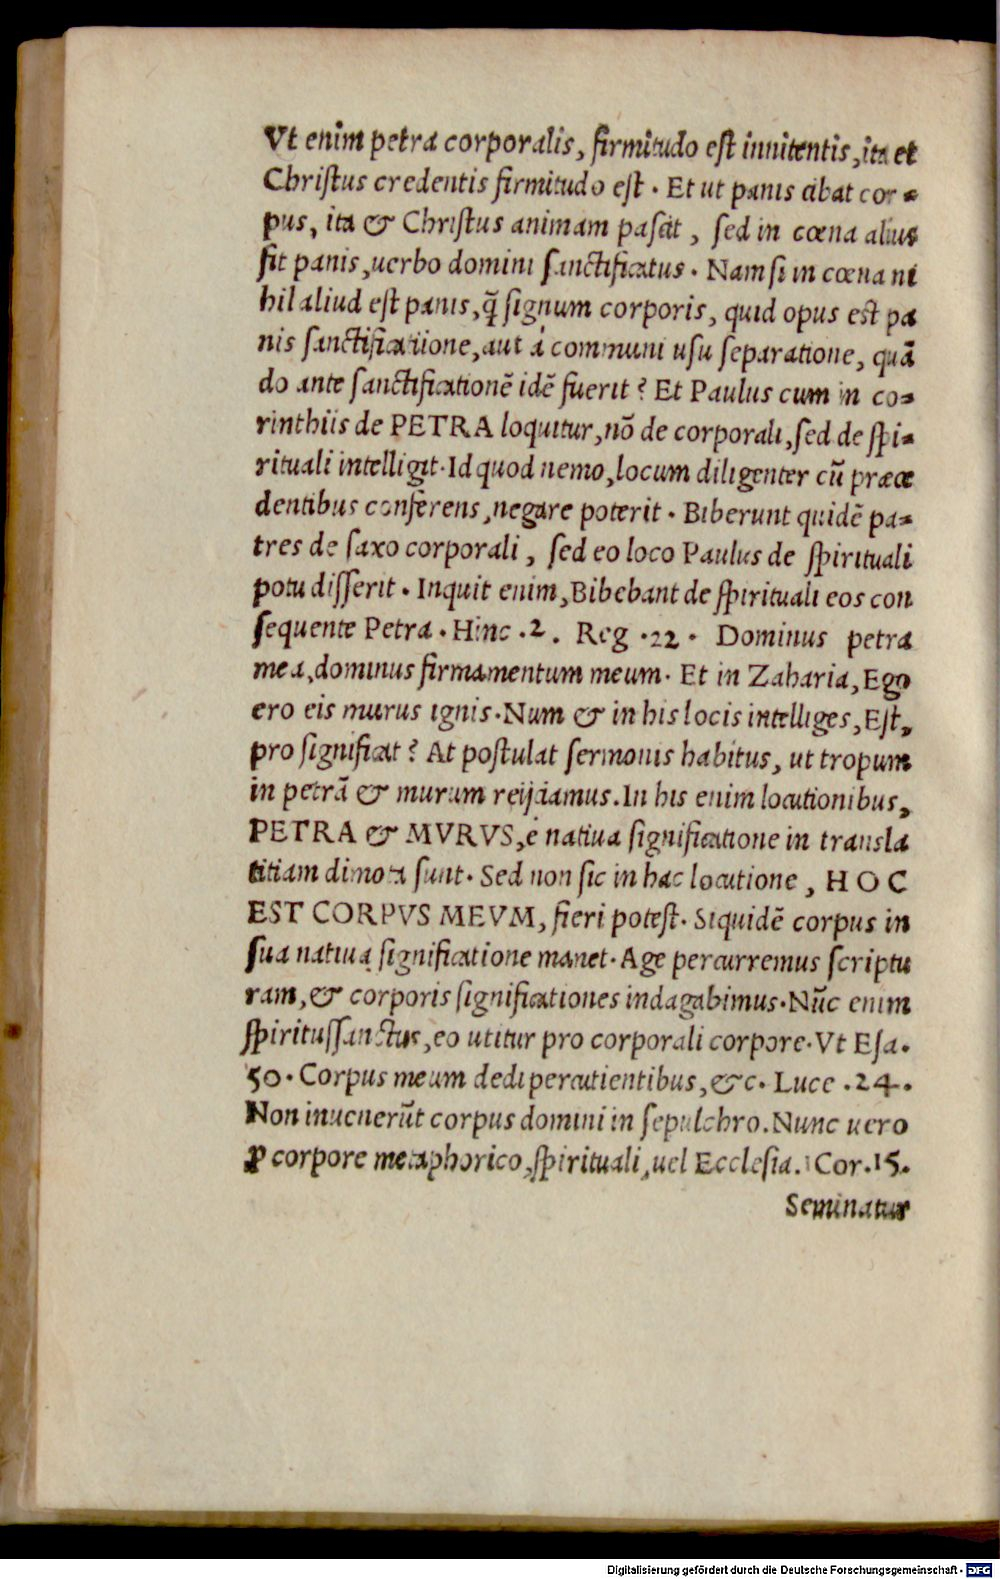 Vt enim petra corporalis, firmitudo est innitentis, ita et
Christus credentis firmitudo est. Et ut panis cibat cor=
pus, ita & Christus animam pascit, sed in cœna alius
fit panis, uerbo domini sanctificatus. Nam si in cœna ni
hil aliud est panis, q̃ signum corporis, quid opus est pa
nis sanctificatiione, aut á communi usu separatione, quã
do ante sanctificationẽ idẽ fuerit? Et Paulus cum in co=
rinthiis de PETRA loquitur, nõ de corporali, sed de spi=
rituali intelligit. Id quod nemo, locum diligenter cũ præce
dentibus conferens, negare poterit. Biberunt quidẽ pa=
tres de saxo corporali, sed eo loco Paulus de spirituali
potu disserit. Inquit enim, Bibebant de spirituali eos con
sequente Petra. Hinc .2. Reg .22. Dominus petra
mea, dominus firmamentum meum. Et in Zaharia, Ego
ero eis murus ignis. Num & in his locis intelliges, Est,
pro significat? At postulat sermonis habitus, ut tropum
in petrã & murum reijciamus. In his enim locutionibus,
PETRA & MVRVS, é natiua significatione in transla
titiam dimota sunt. Sed non sic in hac locutione, HOC
EST CORPVS MEVM, fieri potest. Siquidẽ corpus in
sua natiua significatione manet. Age percurremus scriptu
ram, & corporis significationes indagabimus. Nũc enim
spiritussanctus, eo utitur pro corporali corpore. Vt Esa.
50. Corpus meum dedi percutientibus, &c. Luce .24.
Non inuenerũt corpus domini in sepulchro. Nunc uero
ꝓ corpore metaphorico, spirituali, uel Ecclesia. 1 Cor. 15.
Seminatur
Digitalisierung gefördert durch die Deutsche Forschungsgemeinschaft - DFG